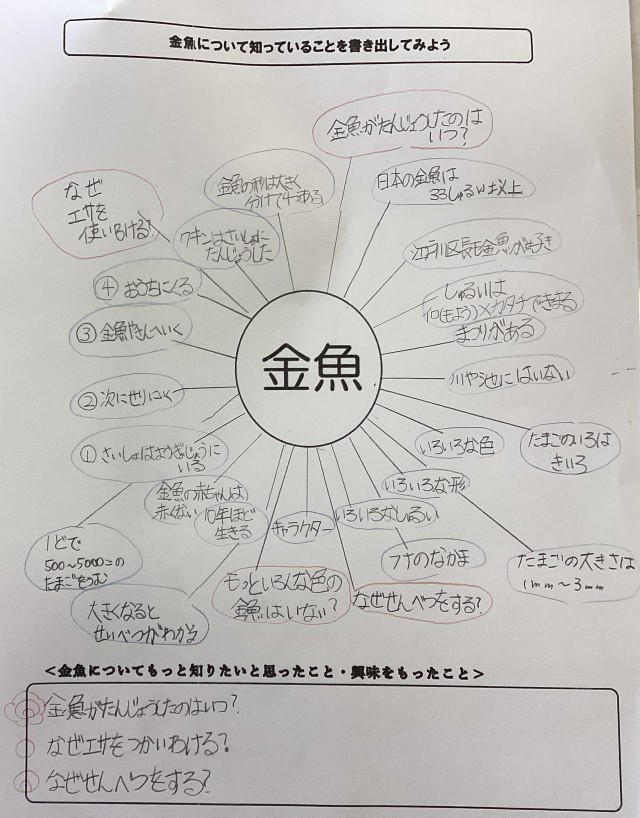 金魚について知っていることを書き出してみよう
金魚がたんじょうしたのは
いつ?
金魚の形は大きく
分けて4つある
日本の金魚は
33しゅるい以上
なぜ
エサを
使い分ける?
ワキンはさいしょに
たんじょうした
江戸川区長も金魚が好き
④ おうちにくる
しゅるいは
色(もよう)×カタチできまる
まつりがある
③ 金魚やさんへいく
金魚
川や池にはいない
② 次にせりにいく
いろいろな色
たまごのいろは
きいろ
① さいしょはようぎじょうに
いる
いろいろな形
金魚の赤ちゃんは
赤くない
10年ほど
生きる
キャラクター
いろいろなしゅるい
1どで
500~5000この
たまごをうむ
フナのなかま
たまごの大きさは
1mm~3mm
大きくなると
せいべつがわかる
もっといろんな色の
金魚はいない?
なぜせんべつをする?
<金魚についてもっと知りたいと思ったこと・興味をもったこと>
金魚がたんじょうしたのはいつ?
なぜエサをつかいわける?
なぜせんべつをする?